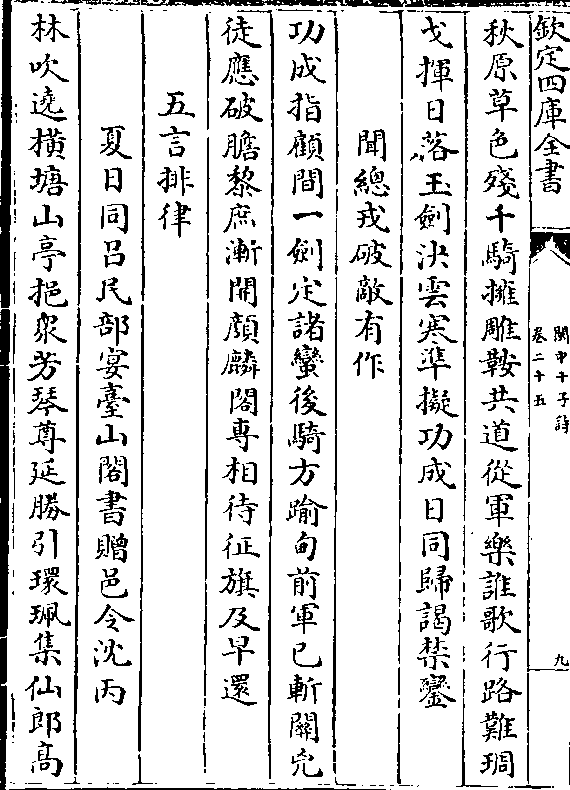 欽定四庫全書
閩中十子詩
卷二十五
九
秋原草色殘千騎擁雕鞍共道從軍樂誰歌行路難琱
戈揮日落玉劍決雲寒準擬功成日同歸謁禁鑾
聞總戎破敵有作
功成指顧間一劍定諸蠻後騎方踰甸前軍已斬關兇
徒應破膽黎庶漸開顏麟閣專相待征旗及早還
五言排律
夏日同吕民部宴臺山閣書贈邑令沈丙
林吹遶横塘山亭挹衆芳琴尊延勝引環珮集仙郎高